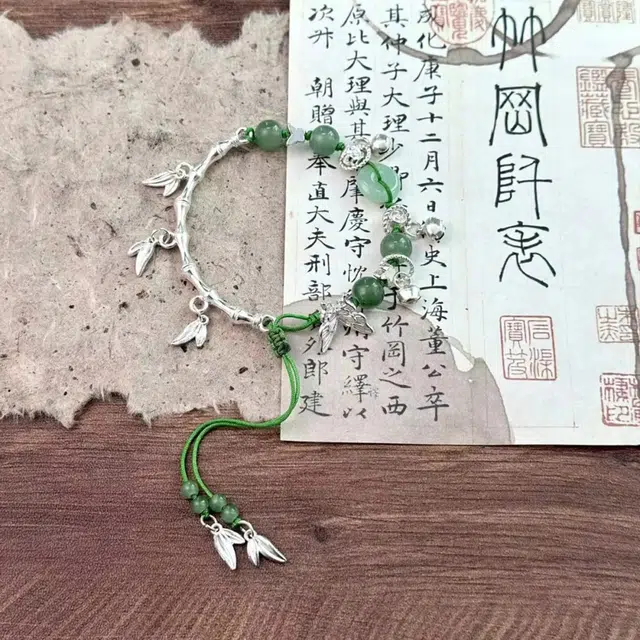 竹岡阡表
成化庚子十二月六日史上海董公卒
其仲子大理少竹岡之西
原比大理與其慶守忱守繹以
次升 朝贈奉直大夫刑部外郎建
鑑藏寶
石渠寶笈